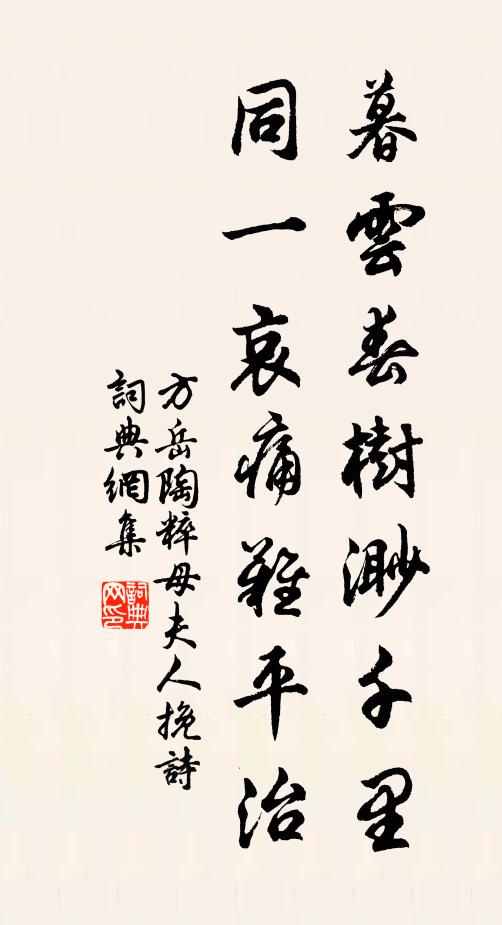 暮雲春樹渺千里
同一哀痛難平治
方岳陶粹母夫人挽詩
詞典網集
詞典网印